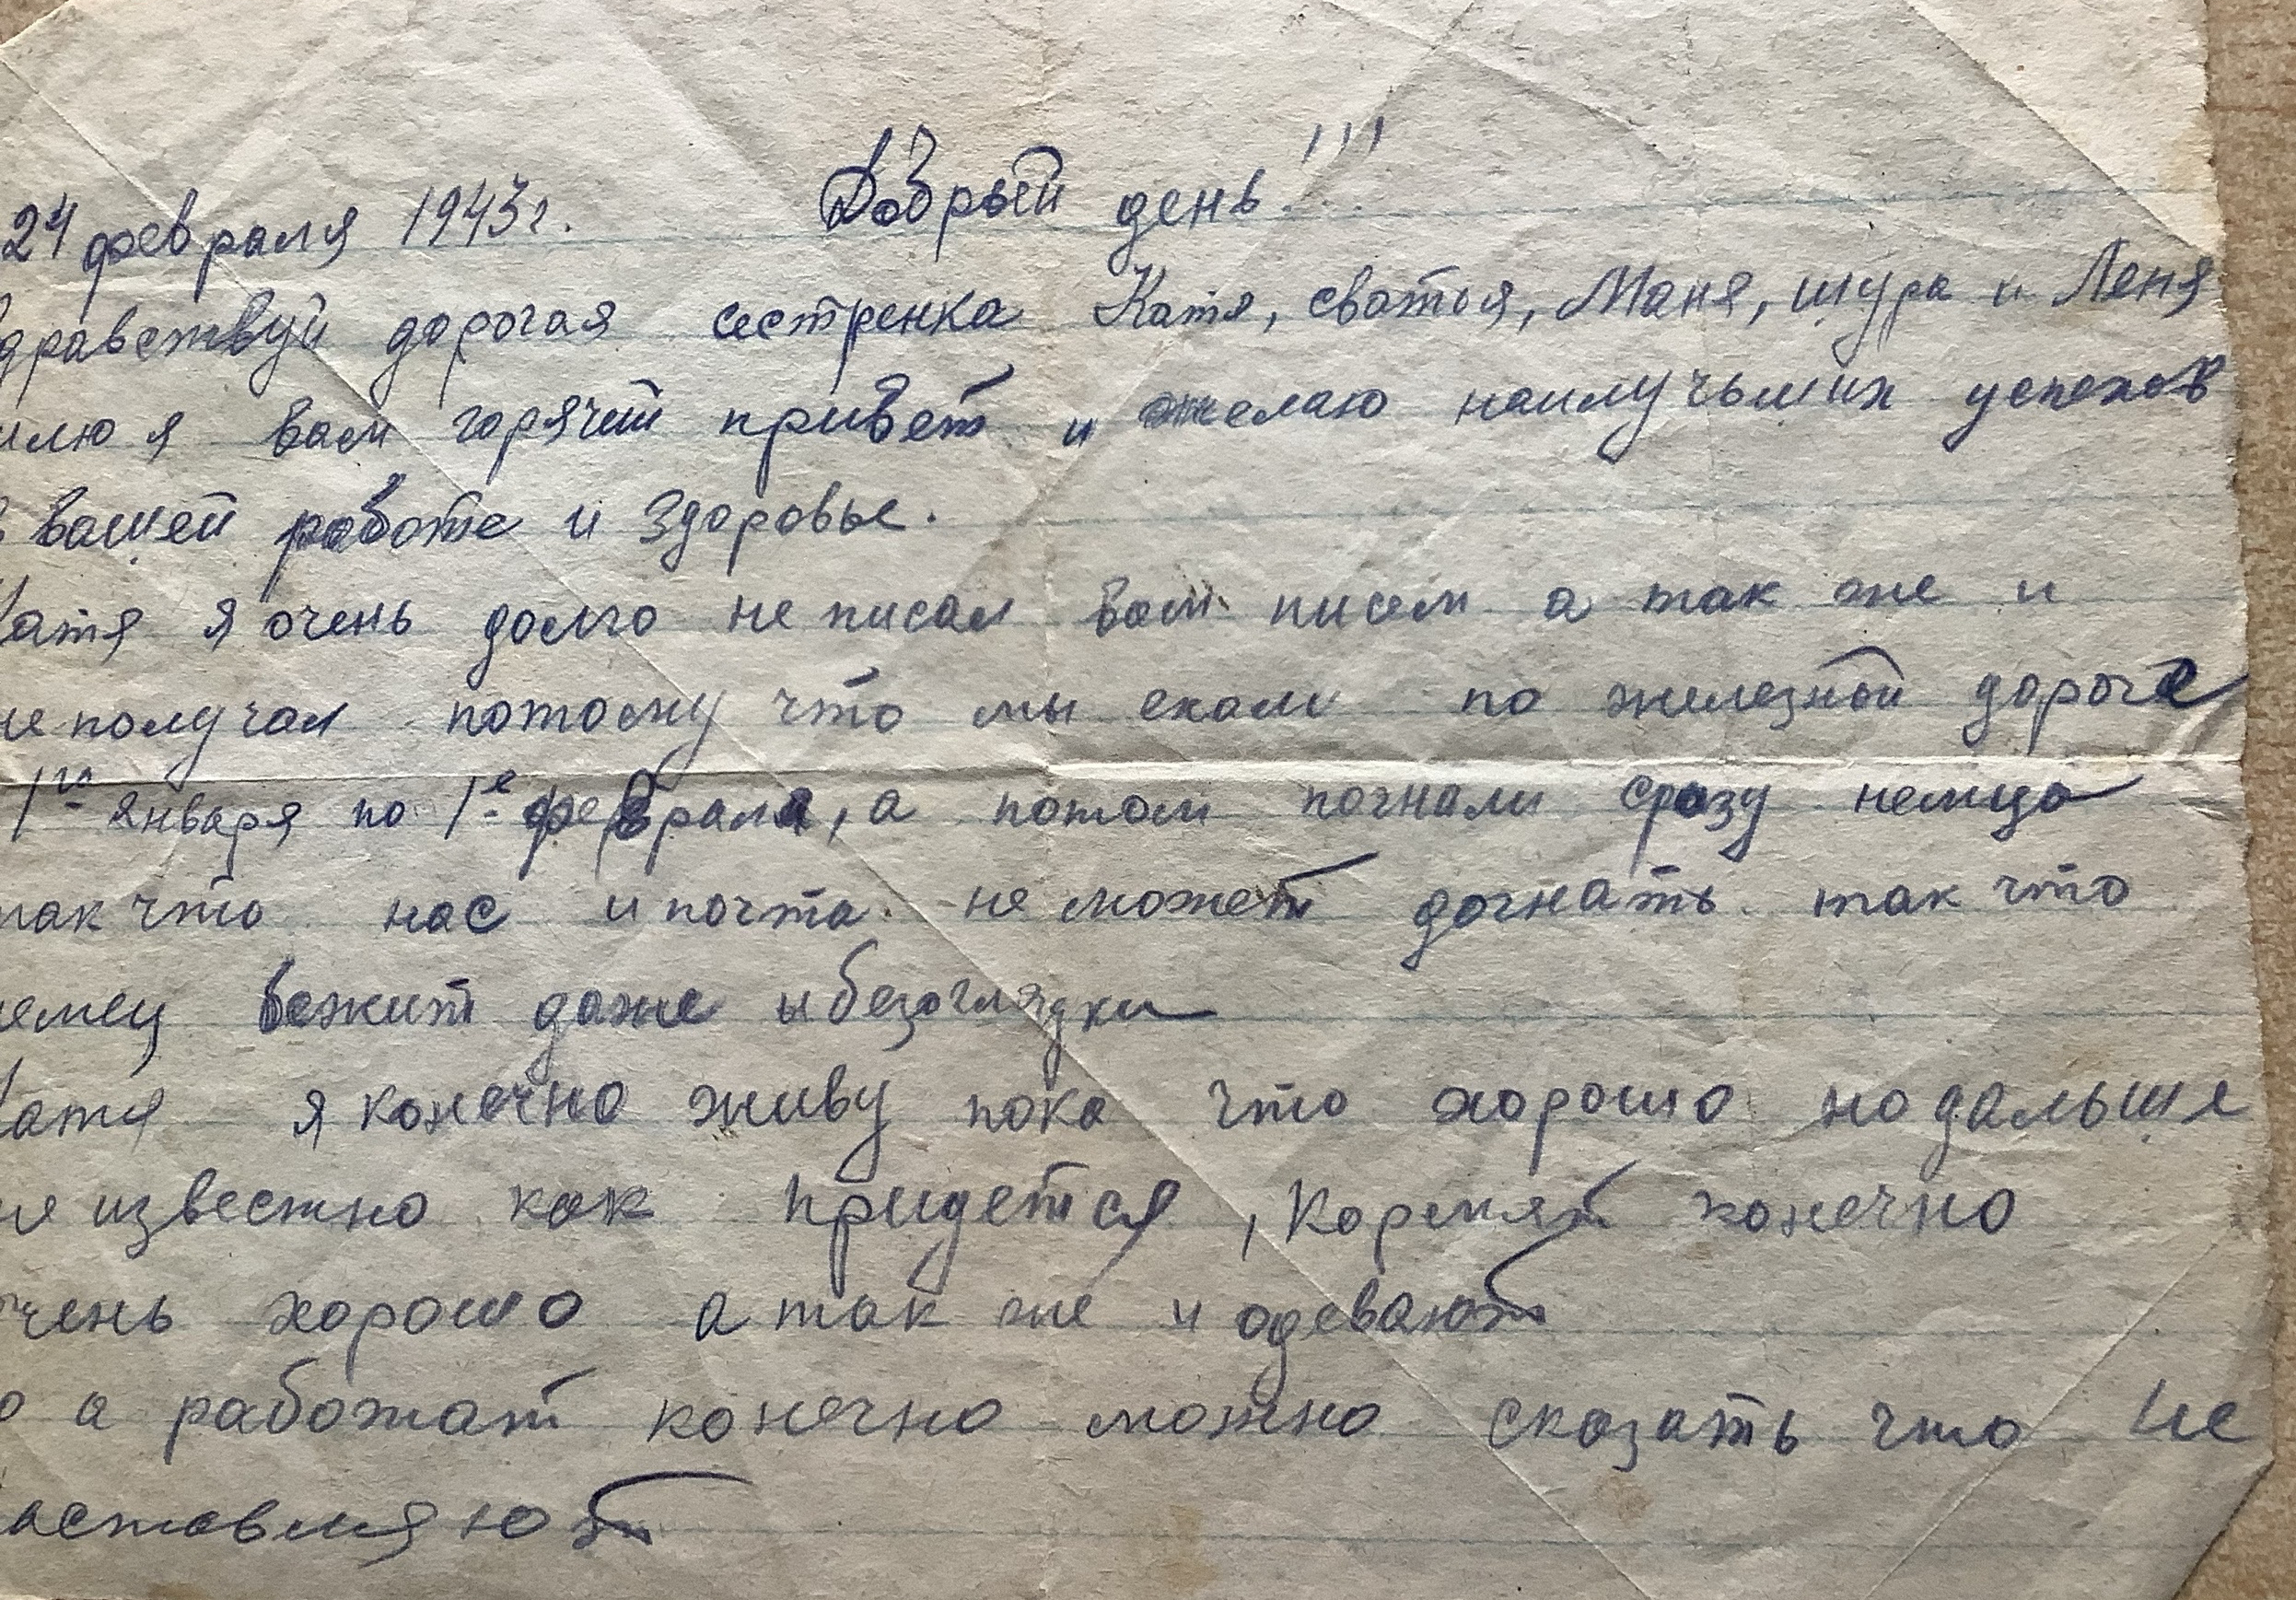 24 февраля 1943г. Добрый день!!!
дравствуй дорогая сестренка Катя, сватья, Маня, шура и Леня
шлю я вам горячей привет и желаю наилучьших успехов
в вашей работе и здоровье.
Катя я очень долго не писал вам писем а так же и
не получал потому что мы ехали по железной дороге
1го января по 1е февраля, а потом погнали сразу немца
так что нас и почта не может догнать так что
немец бежит даже и безоглядки
Катя я конечно живу пока что хорошо но дальше
не известно как придется, Кормят конечно
очень хорошо а так же и одевают
о а работат конечно можно сказать что не
заставляют